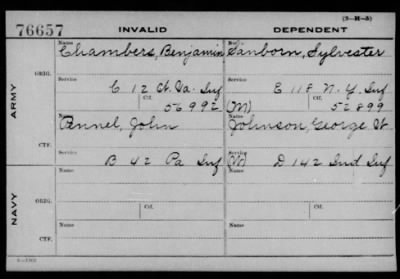 (3-M-5)
76657 INVALID DEPENDENT
Name Chambers, Benjamin Name Sanborn, Sylvester
ORIG.
Service Service
C 12 Ct. Va. Inf E 118 N. Y. Inf
Ctf. Ctf.
56992 (M) 52899
ARMY
Name Pennel, John Name Johnson, George W
CTF.
Service Service
B 42 Pa Inf (W) D 142 Ind Inf
Name Name
ORIG.
Ctf. Ctf.
NAVY
Name Name
CTF.